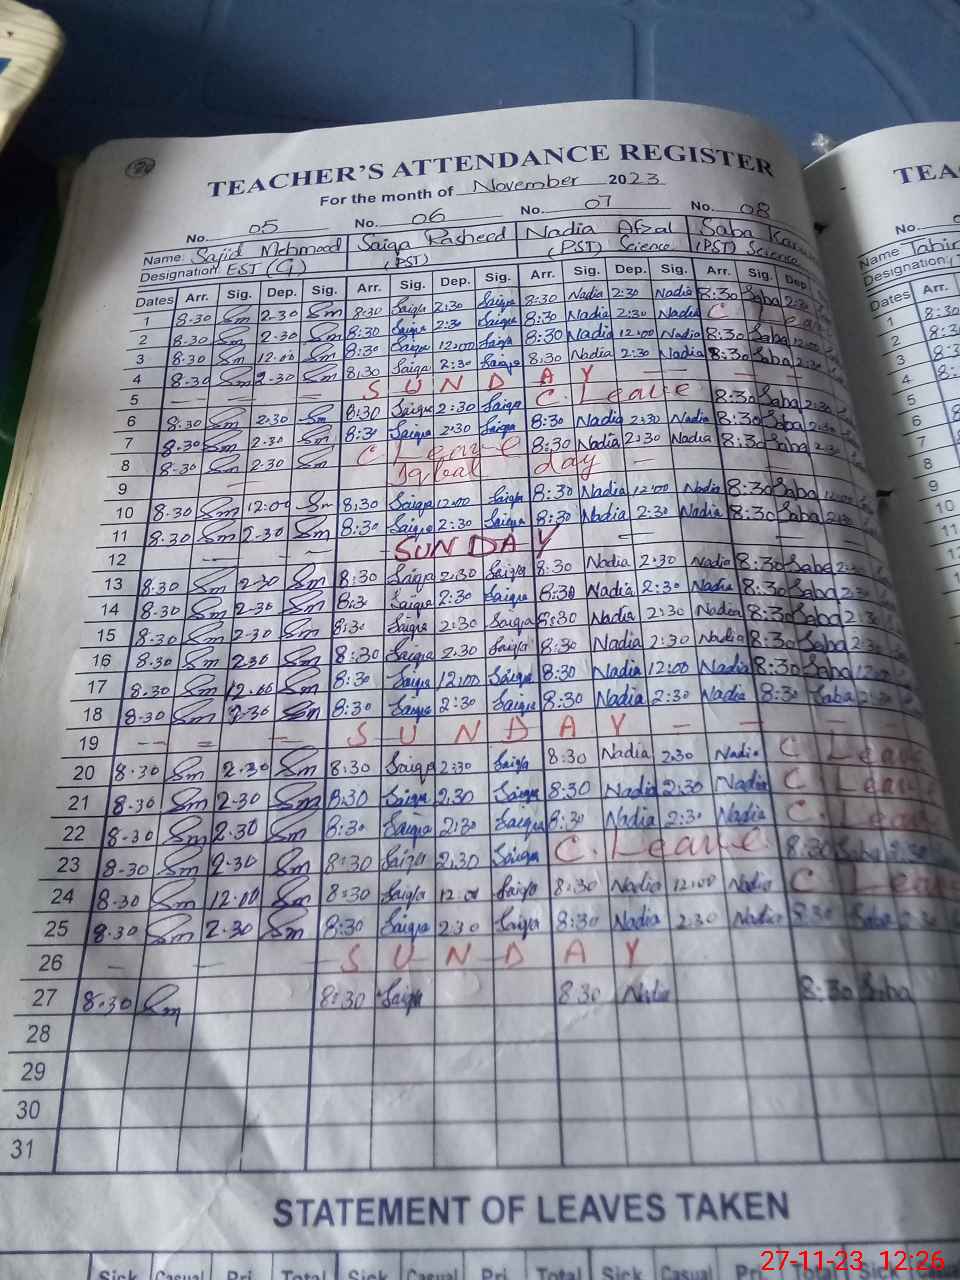 TEACHER'S ATTENDANCE REGISTER
For the month of November 2023
No. 05 No. 06 No. 07 No. 08
Name: Sajid Mehmood Saiqa Rasheed Nadia Afzal Saba
Designation: EST (G) (PST) (PST) Science (PST) Science
Dates Arr. Sig. Dep. Sig. Arr. Sig. Dep. Sig. Arr. Sig. Dep. Sig. Arr. Sig. Dep
1 8:30 Sm 2:30 Sm 8:30 Saiqa 2:30 Saiqa 8:30 Nadia 2:30 Nadia 8:30 Saba 2:30
2 8:30 Sm 2:30 Sm 8:30 Saiqa 2:30 Saiqa 8:30 Nadia 2:30 Nadia C Lea
3 8:30 Sm 12:00 Sm 8:30 Saiqa 12:00 Saiqa 8:30 Nadia 12:00 Nadia 8:30 Saba 12:00
4 8:30 Sm 2:30 Sm 8:30 Saiqa 2:30 Saiqa 8:30 Nadia 2:30 Nadia 8:30 Saba 2:30
5 — — — — S U N D A Y — — — —
6 8:30 Sm 2:30 Sm 8:30 Saiqa 2:30 Saiqa C. Leave 8:30 Saba 2:30
7 8:30 Sm 2:30 Sm 8:3 Saiqa 2:30 Saiqa 8:30 Nadia 2:30 Nadia 8:30 Saba 2:30
8 8:30 Sm 2:30 Sm C. Leave 8:30 Nadia 2:30 Nadia 8:30 Saba 2:30
9 — Iqbal day — —
10 8:30 Sm 12:00 Sm 8:30 Saiqa 12:00 Saiqa 8:30 Nadia 12:00 Nadia 8:30 Saba 12:00
11 8:30 Sm 2:30 Sm 8:30 Saiqa 2:30 Saiqa 8:30 Nadia 2:30 Nadia 8:30 Saba 2:30
12 — — — — SUNDAY — — — —
13 8:30 Sm 2:30 Sm 8:30 Saiqa 2:30 Saiqa 8:30 Nadia 2:30 Nadia 8:30 Saba 2:30
14 8:30 Sm 2:30 Sm 8:3 Saiqa 2:30 Saiqa 8:30 Nadia 2:30 Nadia 8:30 Saba 2:30
15 8:30 Sm 2:30 Sm 8:30 Saiqa 2:30 Saiqa 8:30 Nadia 2:30 Nadia 8:30 Saba 2:30
16 8:30 Sm 2:30 Sm 8:30 Saiqa 2:30 Saiqa 8:30 Nadia 2:30 Nadia 8:30 Saba 2:30
17 8:30 Sm 12:00 Sm 8:30 Saiqa 12:00 Saiqa 8:30 Nadia 12:00 Nadia 8:30 Saba 12:00
18 8:30 Sm 2:30 Sm 8:30 Saiqa 2:30 Saiqa 8:30 Nadia 2:30 Nadia 8:30 Saba 2:30
19 — — — S U N D A Y — — — —
20 8:30 Sm 2:30 Sm 8:30 Saiqa 2:30 Saiqa 8:30 Nadia 2:30 Nadia C Leave
21 8:30 Sm 2:30 Sm 8:30 Saiqa 2:30 Saiqa 8:30 Nadia 2:30 Nadia C Leave
22 8:30 Sm 2:30 Sm 8:30 Saiqa 2:30 Saiqa 8:30 Nadia 2:30 Nadia C. Lea
23 8:30 Sm 2:30 Sm 8:30 Saiqa 2:30 Saiqa C. Leave 8:30 Saba 2:30
24 8:30 Sm 12:00 Sm 8:30 Saiqa 12:00 Saiqa 8:30 Nadia 12:00 Nadia C Leave
25 8:30 Sm 2:30 Sm 8:30 Saiqa 2:30 Saiqa 8:30 Nadia 2:30 Nadia 8:30 Saba 2:30
26 — — S U N D A Y
27 8:30 Sm 8:30 Saiqa 8:30 Nadia 8:30 Saba
28
29
30
31
STATEMENT OF LEAVES TAKEN
Sick Casual Pri Total Sick Casual Pri. Total Sick Casual Pri
TEA
No.
Name Tahir
Designation:
Dates Arr.
1 8:30
2 8:3
3 8:3
4 8:
5
6
7
8
9
10
11
27-11-23 12:26